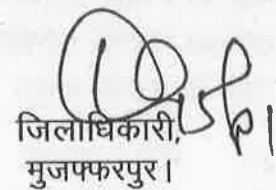 जिलाधिकारी,
मुजफ्फरपुर।